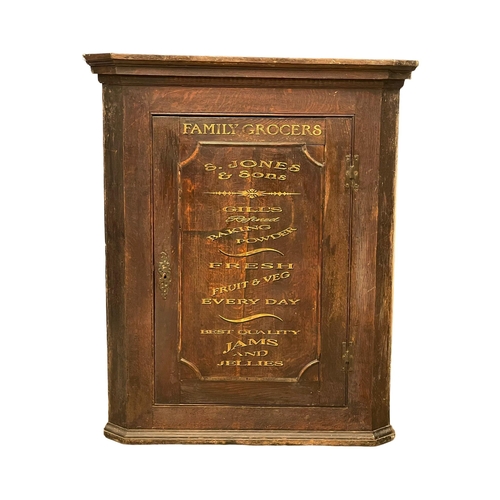 FAMILY GROCERS
S. JONES
& Sons
GILL'S
Refined
BAKING
POWDER
FRESH
FRUIT & VEG
EVERY DAY
BEST QUALITY
JAMS
AND
JELLIES